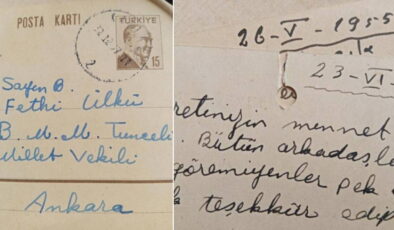 POSTA KARTI
TÜRKİYE
15
Sayın B.
Fethi Ülkü
B. M. M. Tunceli
Millet Vekili
Ankara
26-V-1955
23-VI-
retinizin minnet
. Bütün arkadaşla
göremiyenler pek
teşekkür edip